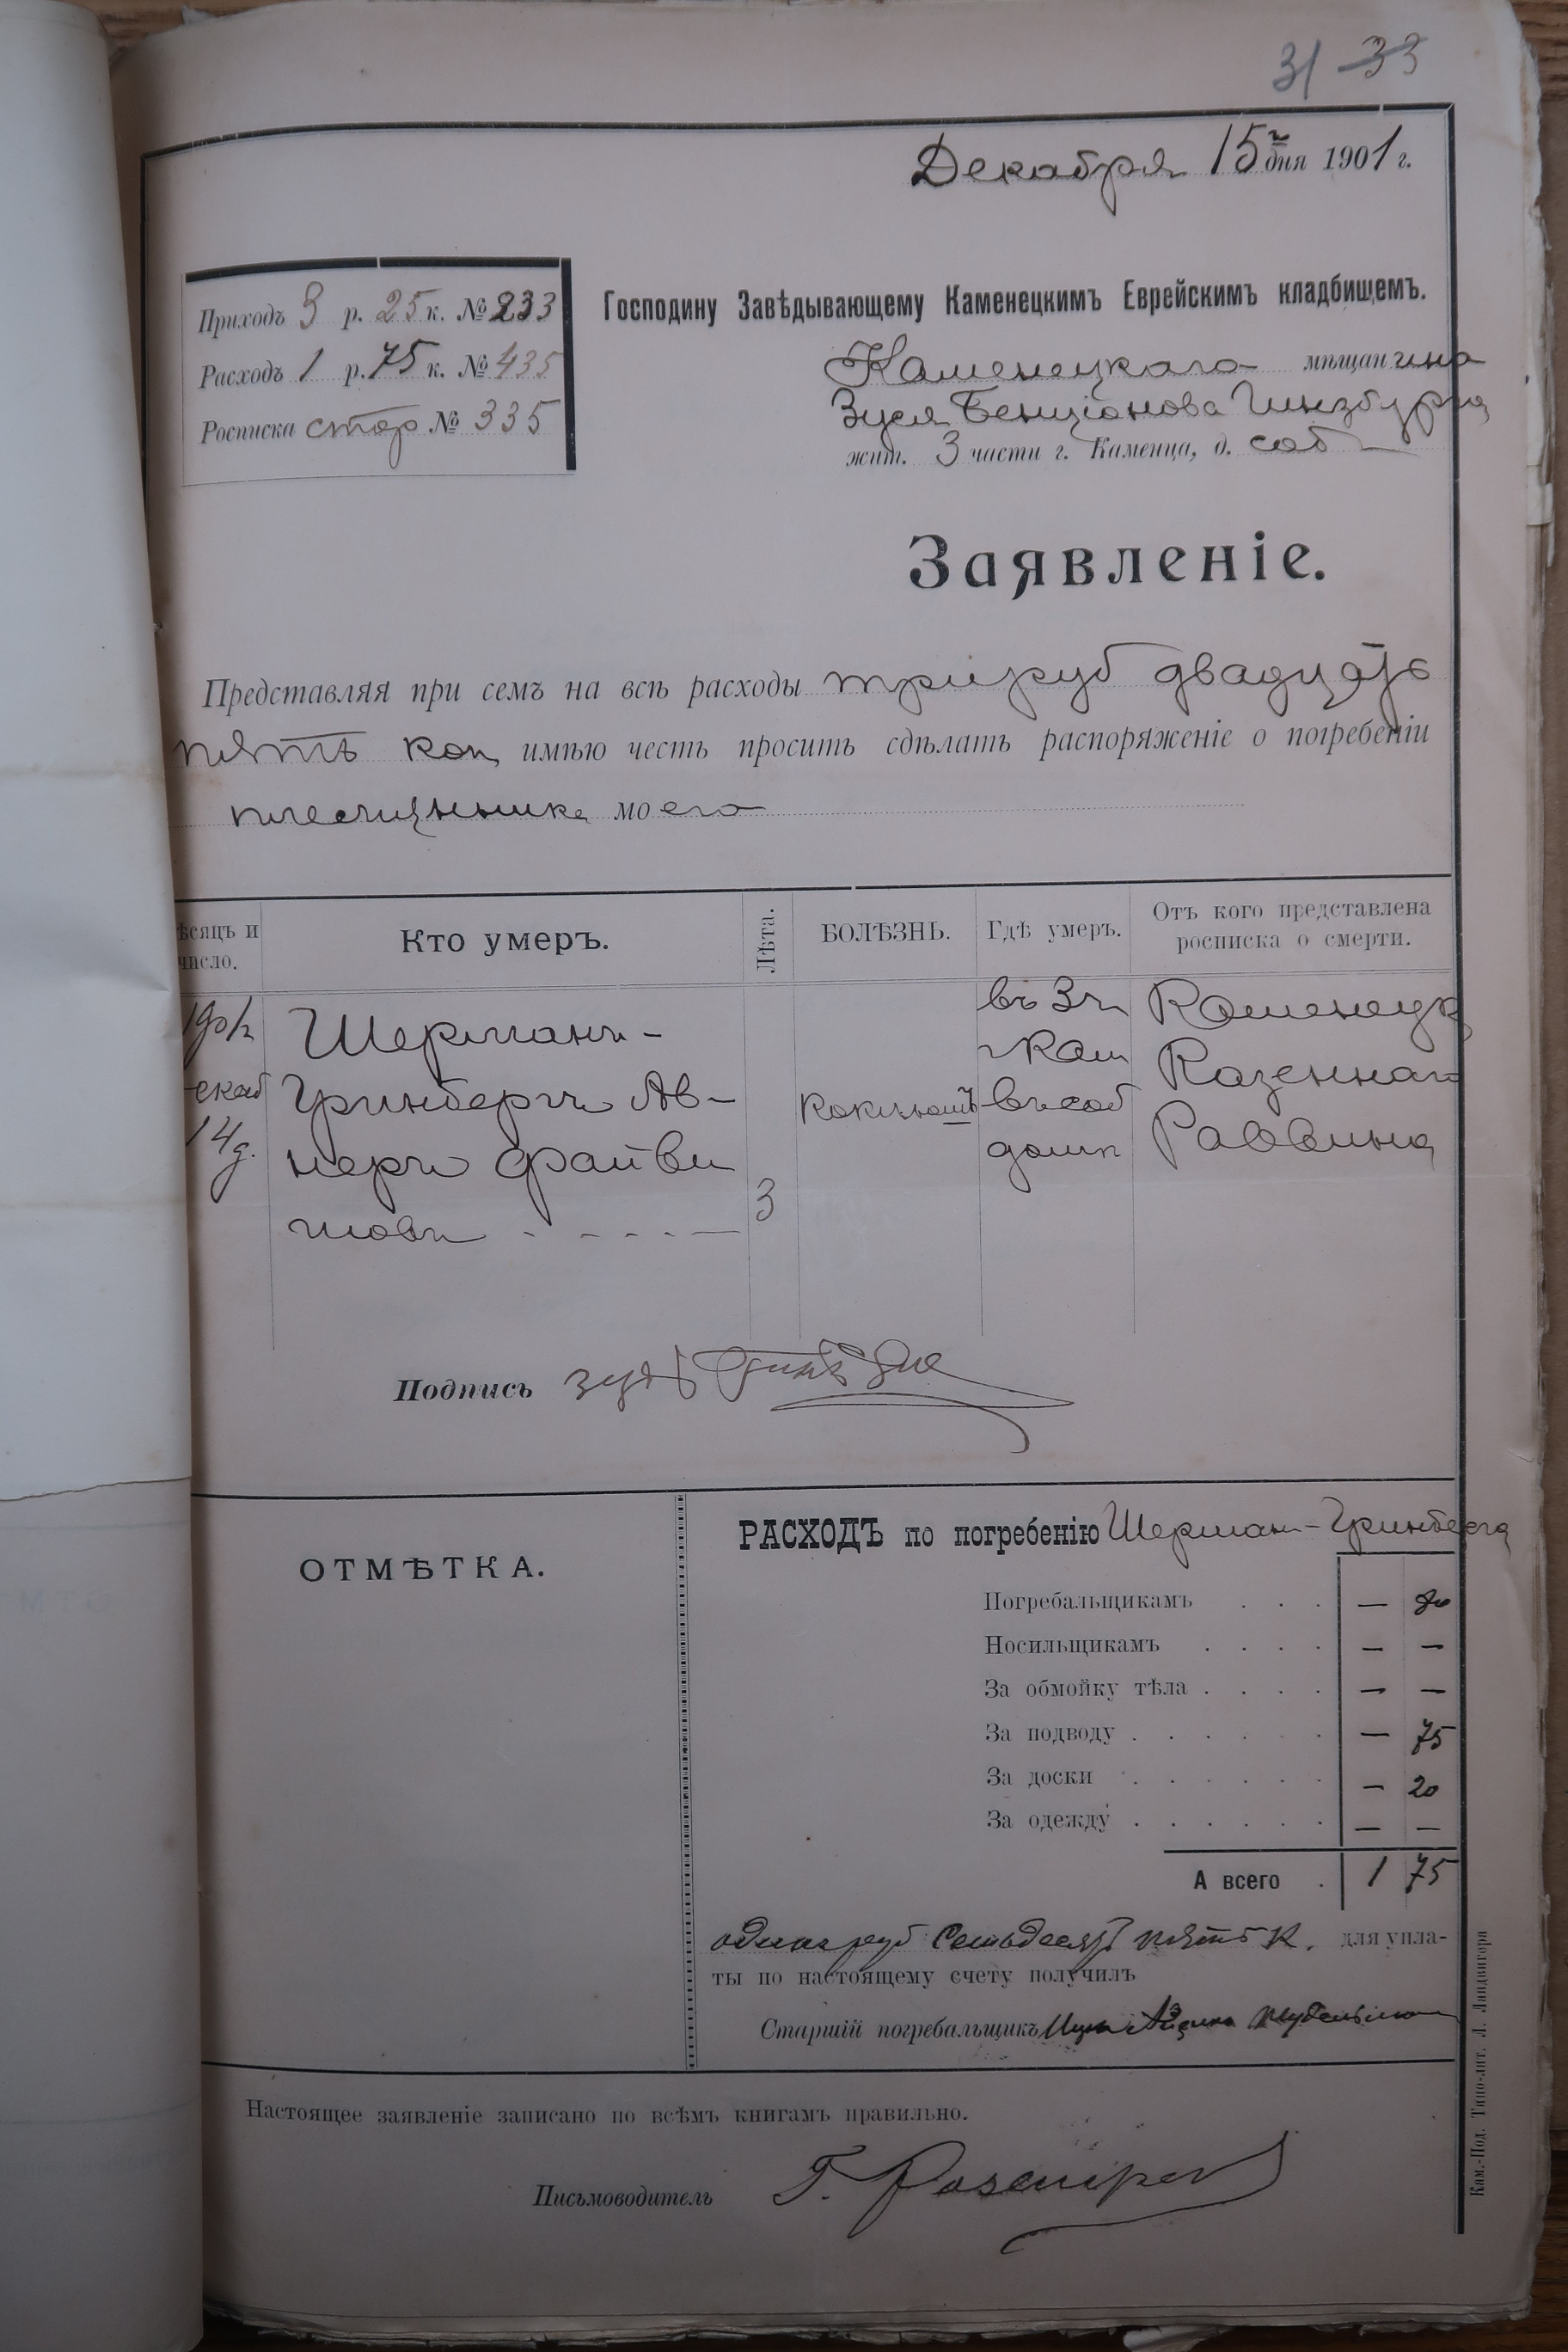 31 33
Декабря 15 дня 1901 г.
Приходъ 3 р. 25 к. № 233
Расходъ 1 р. 75 к. № 435
Росписка стар № 335
Господину Завѣдывающему Каменецкимъ Еврейскимъ кладбищемъ.
Каменецкаго мѣщанина
Зуся Бенціонова Гинзбурга
жит. 3 части г. Каменца, д. соб
Заявленіе.
Представляя при семъ на всѣ расходы три руб двадцать
пять коп имѣю честь просить сдѣлать распоряженіе о погребеніи
племянника моего
ѣсяцъ и число.
Кто умеръ.
Лѣта.
БОЛѢЗНЬ.
Гдѣ умеръ.
Отъ кого представлена росписка о смерти.
екаб
14 д.
Шерманъ-
Гринбергъ Ав-
неръ Файви
шовъ
3
Коклюшъ
въ 3 ч
г Кам
въ соб
домѣ
Каменецк
Казеннаго
Раввина
Подпись
ОТМѢТКА.
РАСХОДЪ по погребенію Шерман-Гринберга
Погребальщикамъ . . . — 80
Носильщикамъ . . . . — —
За обмойку тѣла . . . . — —
За подводу . . . . . . — 75
За доски . . . . . . — 20
За одежду . . . . . . — —
А всего . 1 75
одинъ руб семьдесятъ пять к. для упла-
ты по настоящему счету получилъ
Старшій погребальщикъ
Настоящее заявленіе записано по всѣмъ книгамъ правильно.
Письмоводитель
Кам.-Под. Типо-лит. Л. Ландвигера